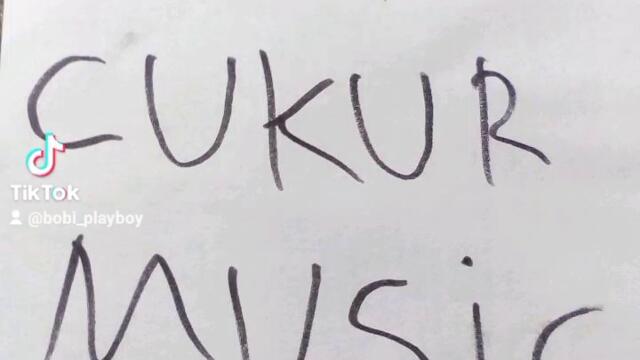 CUKUR
TikTok
@bobi_playboy
MUSiC